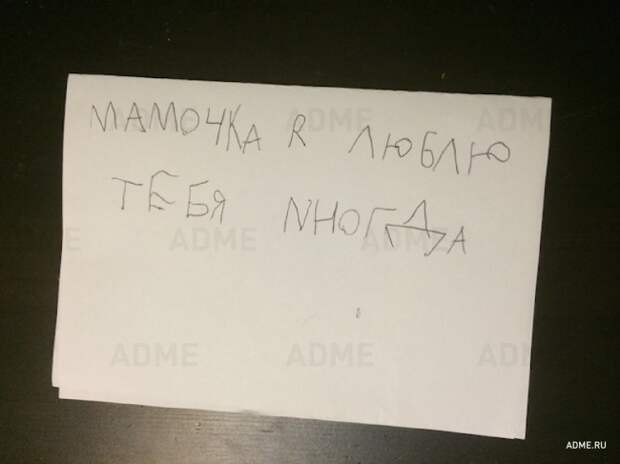 МАМОЧКА R ЛЮБЛЮ
ТЕБЯ NНОГДА
ADME ADME ADME
ADME ADME
ADME ADME AD
ADME.RU